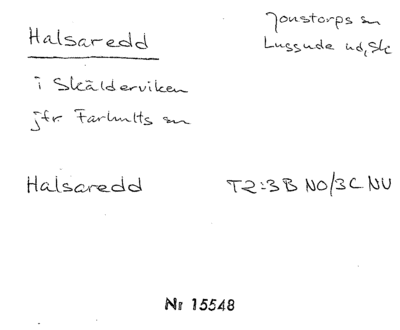 Halsaredd
Jonstorps sn
Luggude hd, Sk
i Skälderviken
jfr. Farhults sn
Halsaredd
T2:3B NO/3C NV
Nr 15548